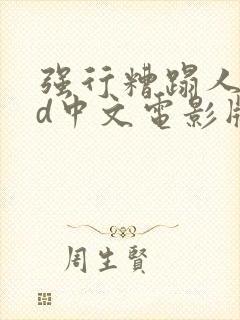 强行糟蹋人
d中文電影版
周生賢